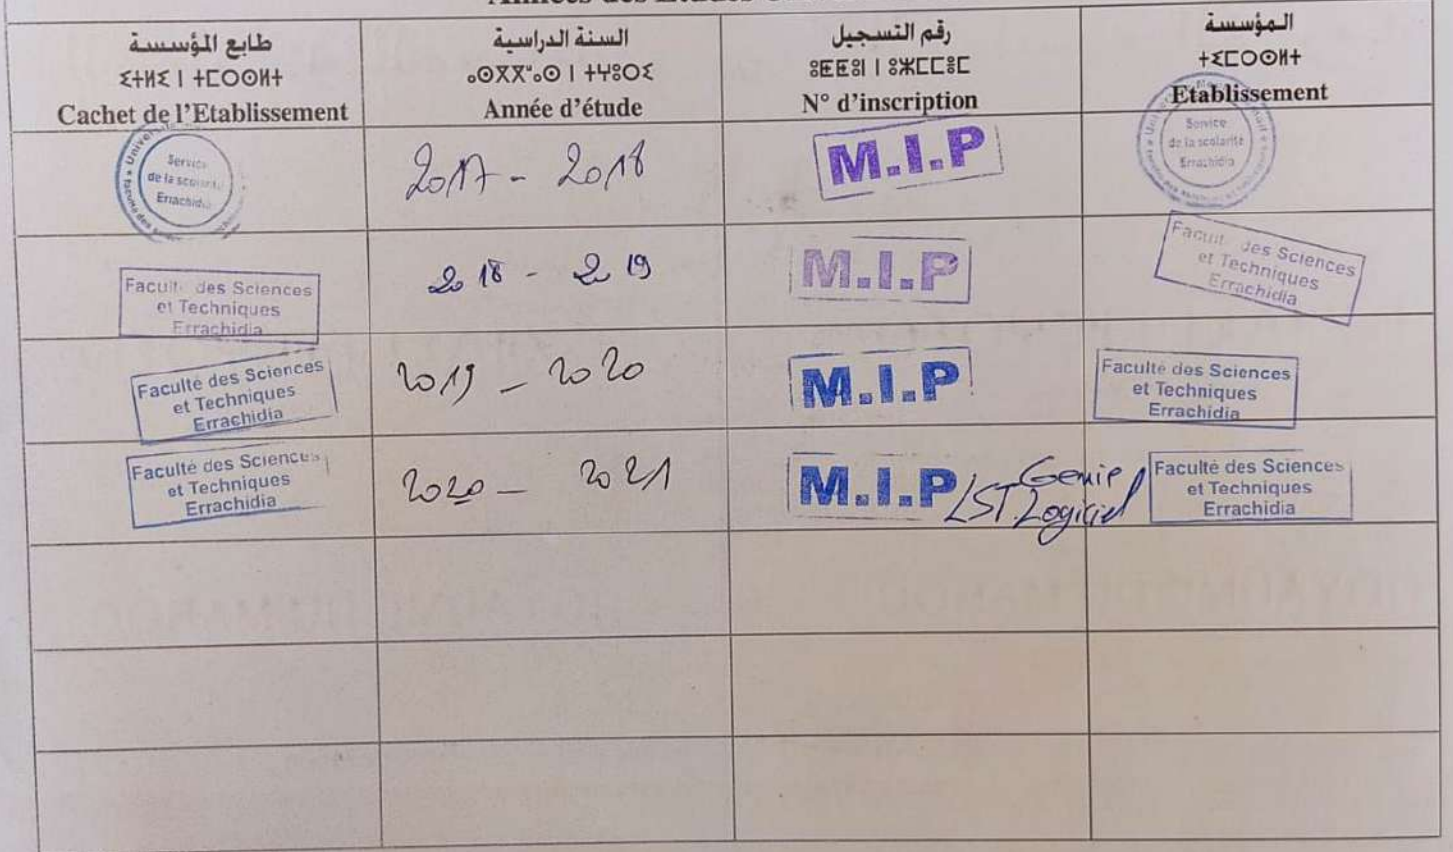 Années des Etudes
طابع المؤسسة
ⵉⵜⵍⵉ ⵏ ⵜⵎⵔⵙⵍⵜ
Cachet de l'Etablissement
السنة الدراسية
ⴰⵙⴳⴳⵯⴰⵙ ⵏ ⵜⵖⵓⵔⵉ
Année d'étude
رقم التسجيل
N° d'inscription
المؤسسة
Etablissement
Service
de la scolarité
Errachidia
2017 - 2018
M.I.P
Service
de la scolarité
Errachidia
Faculté des Sciences
et Techniques
Errachidia
2018 - 2019
M.I.P
Faculté des Sciences
et Techniques
Errachidia
Faculté des Sciences
et Techniques
Errachidia
2019 - 2020
M.I.P
Faculté des Sciences
et Techniques
Errachidia
Faculté des Sciences
et Techniques
Errachidia
2020 - 2021
M.I.P/LST. Genie
Logiciel
Faculté des Sciences
et Techniques
Errachidia